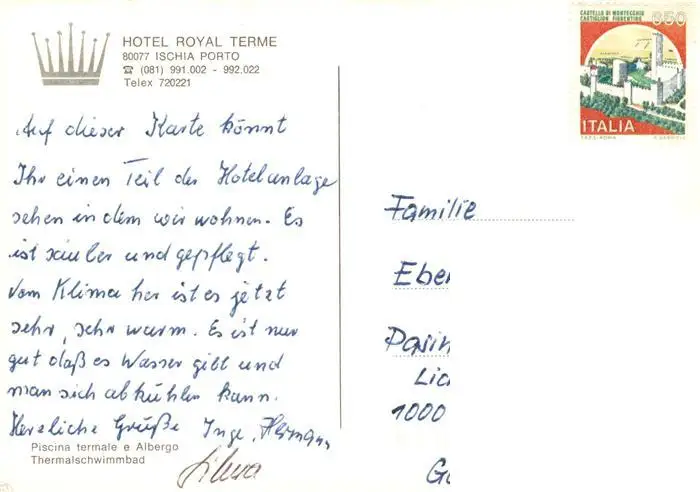 HOTEL ROYAL TERME
80077 ISCHIA PORTO
☎ (081) 991.002 - 992.022
Telex 720221
CASTELLO DI MONTECCHIO
CASTIGLION FIORENTINO
650
ITALIA
Auf dieser Karte könnt
Ihr einen Teil der Hotelanlage
sehen in dem wir wohnen. Es
ist sauber und gepflegt.
Vom Klima her ist es jetzt
sehr, sehr warm. Es ist nur
gut daß es Wasser gibt und
man sich abkühlen kann.
Herzliche Grüße Inge, Hermann
Silvia
Piscina termale e Albergo
Thermalschwimmbad
Familie
Eber
Pasin
Lic
1000